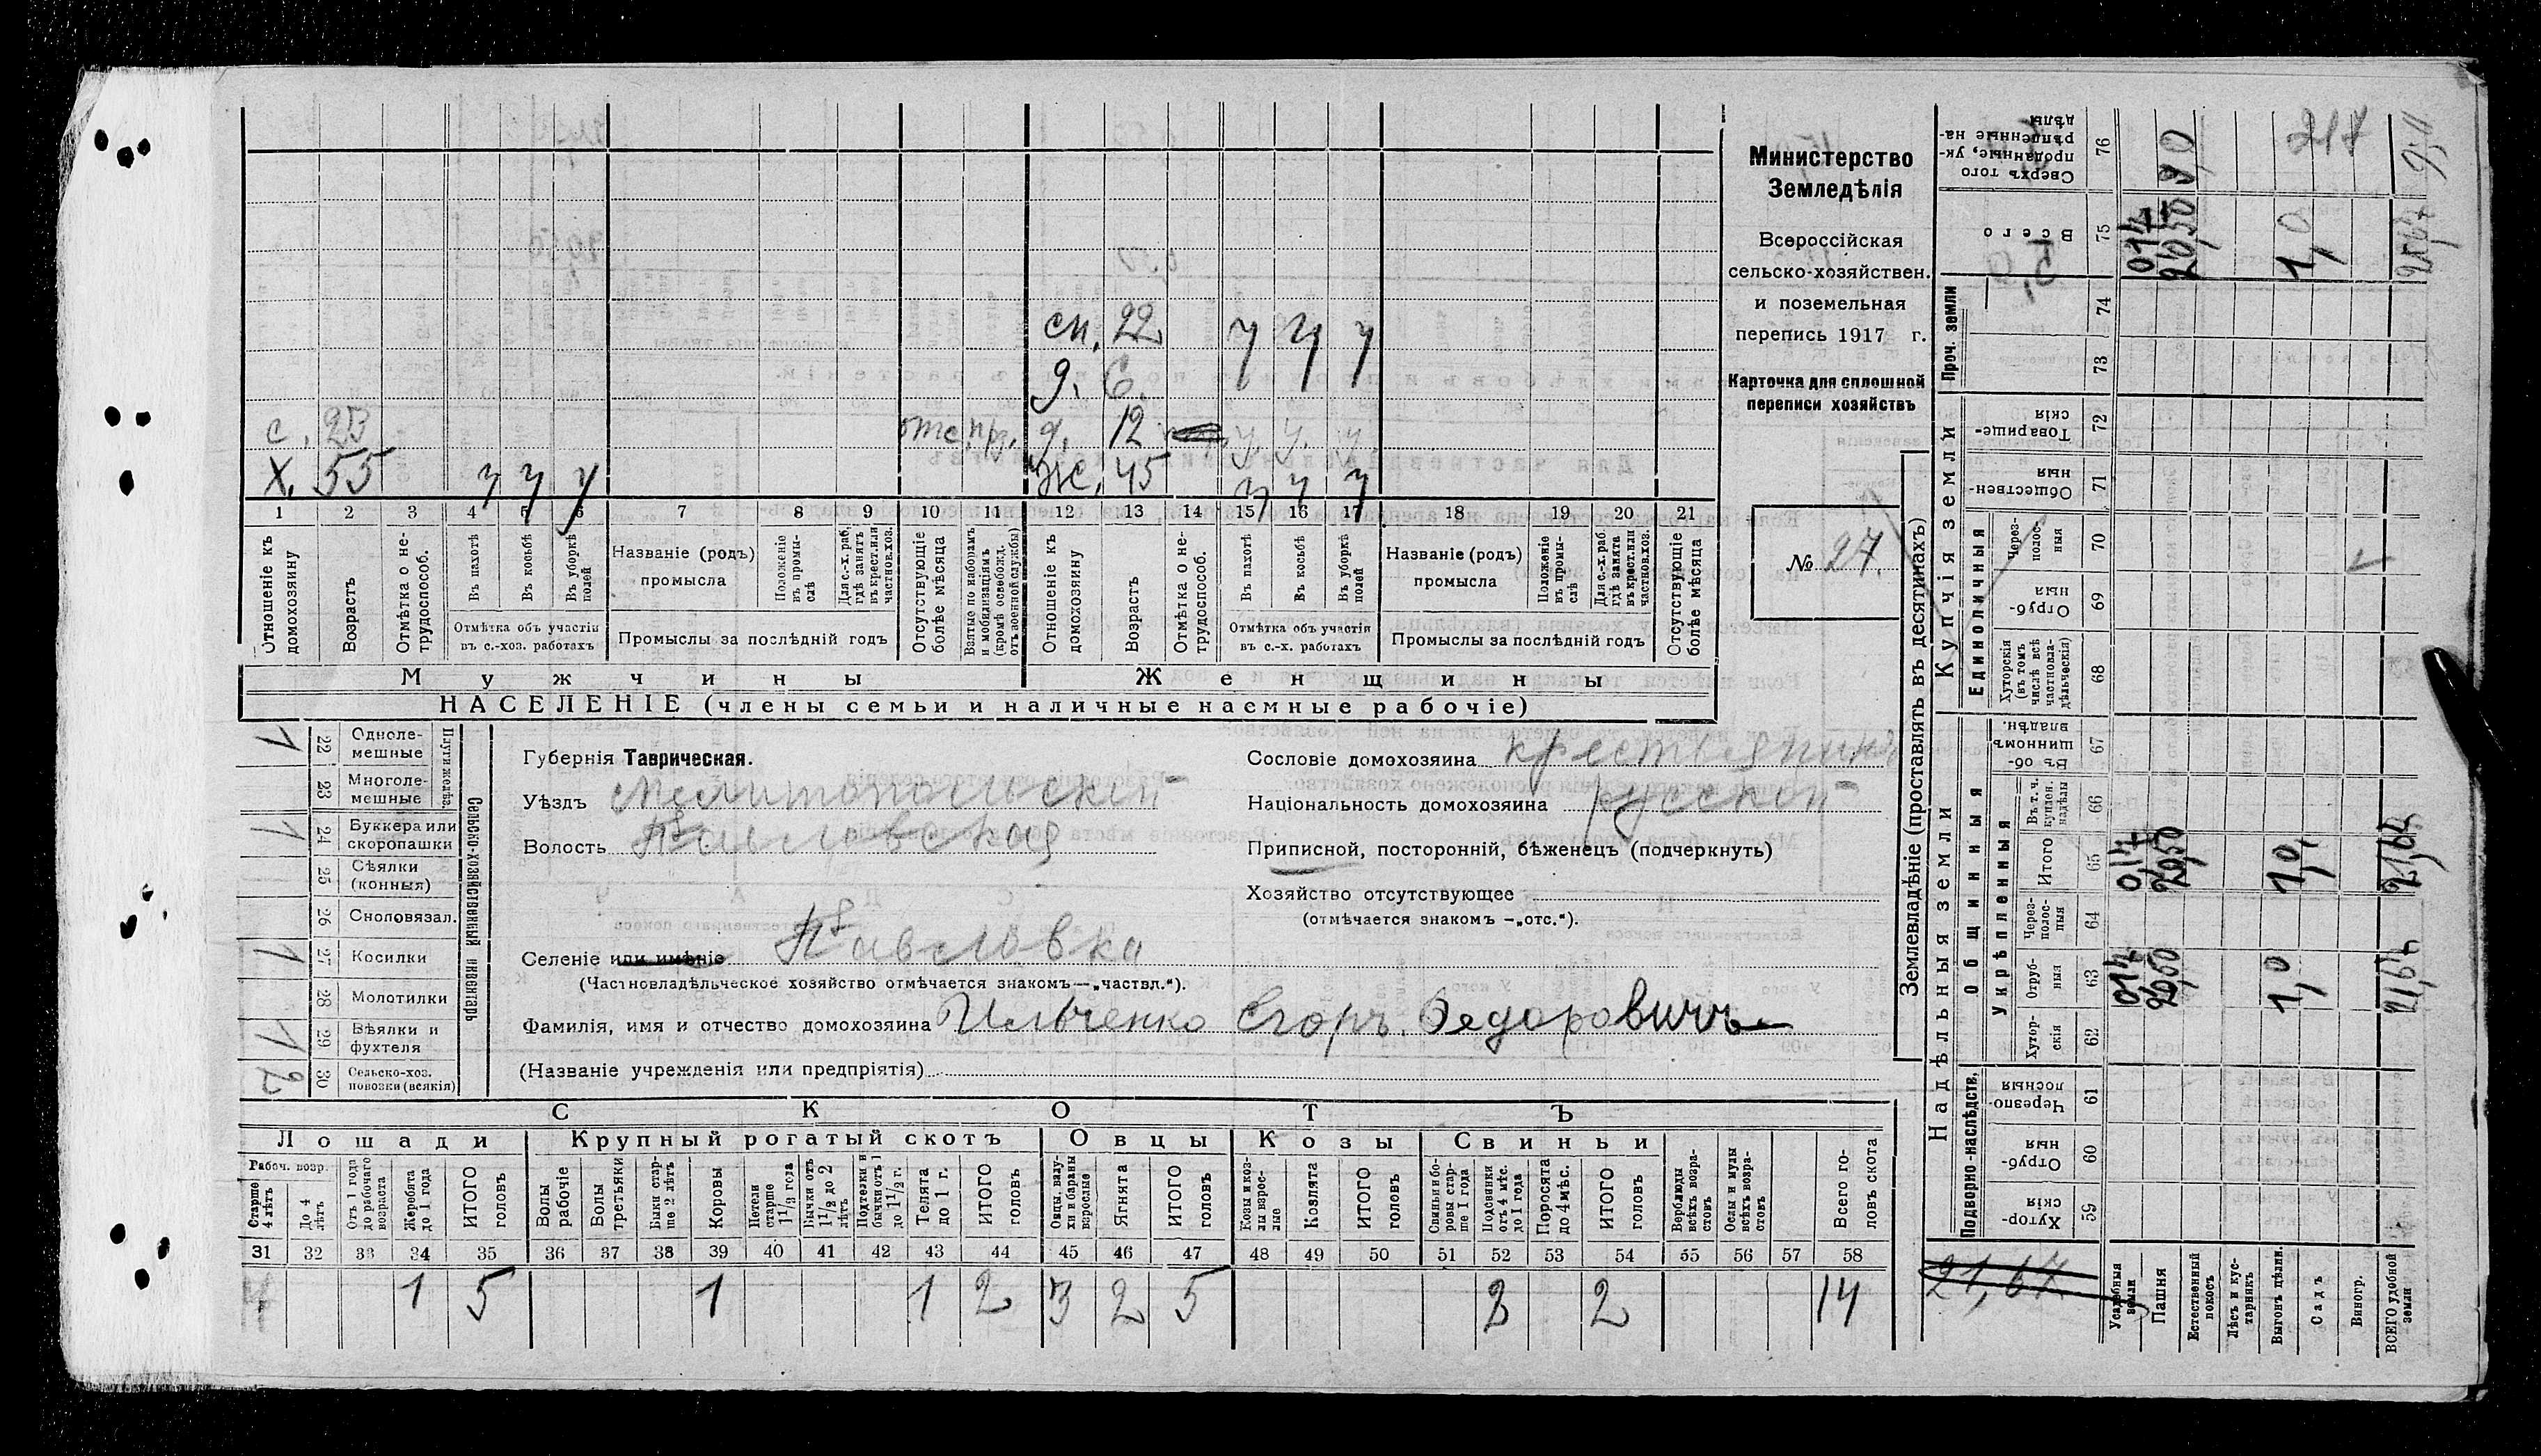 Министерство
Земледѣлія
Всероссійская
сельско-хозяйствен.
и поземельная
перепись 1917 г.
Карточка для сплошной
переписи хозяйствъ
№ 27.
сп. 22 у у у
д. 6.
с. 23 отс. д. 12 у. у. у
Х. 55 у у у Ж. 45 у у у
1 2 3 4 5 6 7 8 9 10 11 12 13 14 15 16 17 18 19 20 21
Отношеніе къ домохозяину
Возрастъ
Отмѣтка о нетрудоспособ.
Въ пахотѣ
Въ косьбѣ
Въ уборкѣ полей
Отмѣтка объ участіи
въ с.-хоз. работахъ
Названіе (родъ)
промысла
Положеніе въ промыслѣ
Для с.-х. раб. гдѣ занятъ въ крест. или частнов. хоз.
Промыслы за послѣдній годъ
Отсутствующіе болѣе мѣсяца
Взятые по наборамъ и мобилизаціямъ (кромѣ освобожд. отъ военной службы)
Отношеніе къ домохозяину
Возрастъ
Отмѣтка о нетрудоспособ.
Въ пахотѣ
Въ косьбѣ
Въ уборкѣ полей
Отмѣтка объ участіи
въ с.-х. работахъ
Названіе (родъ)
промысла
Положеніе въ промыслѣ
Для с.-х. раб. гдѣ занята въ крест. или частнов. хоз.
Промыслы за послѣдній годъ
Отсутствующіе болѣе мѣсяца
Мужчины
Женщины
НАСЕЛЕНІЕ (члены семьи и наличные наемные рабочіе)
Сельско-хозяйственный инвентарь
Плуги желѣз.
1 22 Одноле-мешные
23 Многоле-мешные
1 24 Буккера или скоропашки
25 Сѣялки (конныя)
26 Сноповязал.
1 27 Косилки
28 Молотилки
1 29 Вѣялки и фухтеля
2 30 Сельско-хоз. повозки (всякія)
Губернія Таврическая.
Уѣздъ Мелитопольскій
Волость Павловская
Селеніе или имѣніе Павловка
(Частновладѣльческое хозяйство отмѣчается знакомъ—„частвл.“).
Фамилія, имя и отчество домохозяина Ильченко Егоръ Федоровичъ
(Названіе учрежденія или предпріятія)
Сословіе домохозяина крестьянинъ
Національность домохозяина русскій
Приписной, посторонній, бѣженецъ (подчеркнуть)
Хозяйство отсутствующее
(отмѣчается знакомъ —„отс.“).
СКОТЪ
Лошади Крупный рогатый скотъ Овцы Козы Свиньи
Рабоч. возр.
Старше 4 лѣтъ
До 4 лѣтъ
Отъ 1 года до рабочаго возраста
Жеребята до 1 года
ИТОГО головъ
Волы рабочіе
Волы третьяки
Быки старше 2 лѣтъ
Коровы
Нетели старше 1½ года
Бычки отъ 1½ до 2 лѣтъ
Подтелки и бычки отъ 1 до 1½ г.
Телята до 1 г.
ИТОГО головъ
Овцы, валухи и бараны взрослые
Ягнята
ИТОГО головъ
Козы и козлы взрослые
Козлята
ИТОГО головъ
Свиньи и боровы старше 1 года
Подсвинки отъ 4 мѣс. до 1 года
Поросята до 4 мѣс.
ИТОГО головъ
Верблюды всѣхъ возрастовъ
Ослы и мулы всѣхъ возрастовъ
Всего головъ скота
31 32 33 34 35 36 37 38 39 40 41 42 43 44 45 46 47 48 49 50 51 52 53 54 55 56 57 58
4 1 5 1 1 2 3 2 5 2 2 14
Землевладѣніе (проставлять въ десятинахъ)
Надѣльныя земли
Купчія земли
Проч. земли
Подворно-наслѣдств.
Общинныя
Укрѣпленныя
Единоличныя
Хуторскія 59
Отрубныя 60
Черезполосныя 61
Хуторскія 62
Отрубныя 63
Черезполосныя 64
Итого 65
Въ т. ч. куплен. надѣлы 66
Въ общинномъ владѣн. 67
Хуторскія (въ томъ числѣ всѣ частновладѣльческія) 68
Отрубныя 69
Черезполосныя 70
Общественныя 71
Товарищескія 72
73
74
Всего 75
Сверхъ того проданные, укрѣпленные надѣлы 76
21,67
Усадебныя земли 0,17 0,17 0,17
Пашня 20,50 20,50 20,50
Естественный покосъ
Лѣсъ и кустарникъ
Выгонъ дѣлин. 1,0 1,0 1,0
Садъ
Виногр.
ВСЕГО удобной земли 21,67 21,67
217